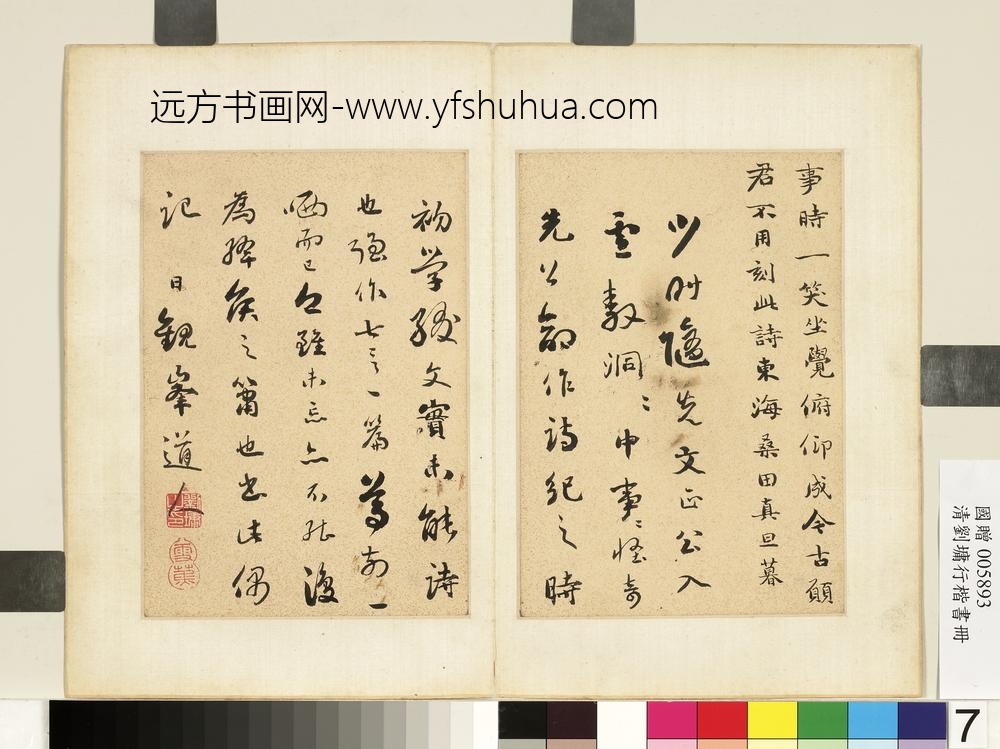 远方书画网-www.yfshuhua.com
事時一笑坐覺俯仰成今古願
君不用刻此詩東海桑田真旦暮
少時隨先文正公入
雲洞洞中事事怪奇
先公命作詩紀之時
初學綴文實未能詩
也強作七言一篇前一
哂而已今雖未忘亦不能復
為之也書此偶
記 日觀峯道人
國贈 005893
清劉墉行楷書冊
7